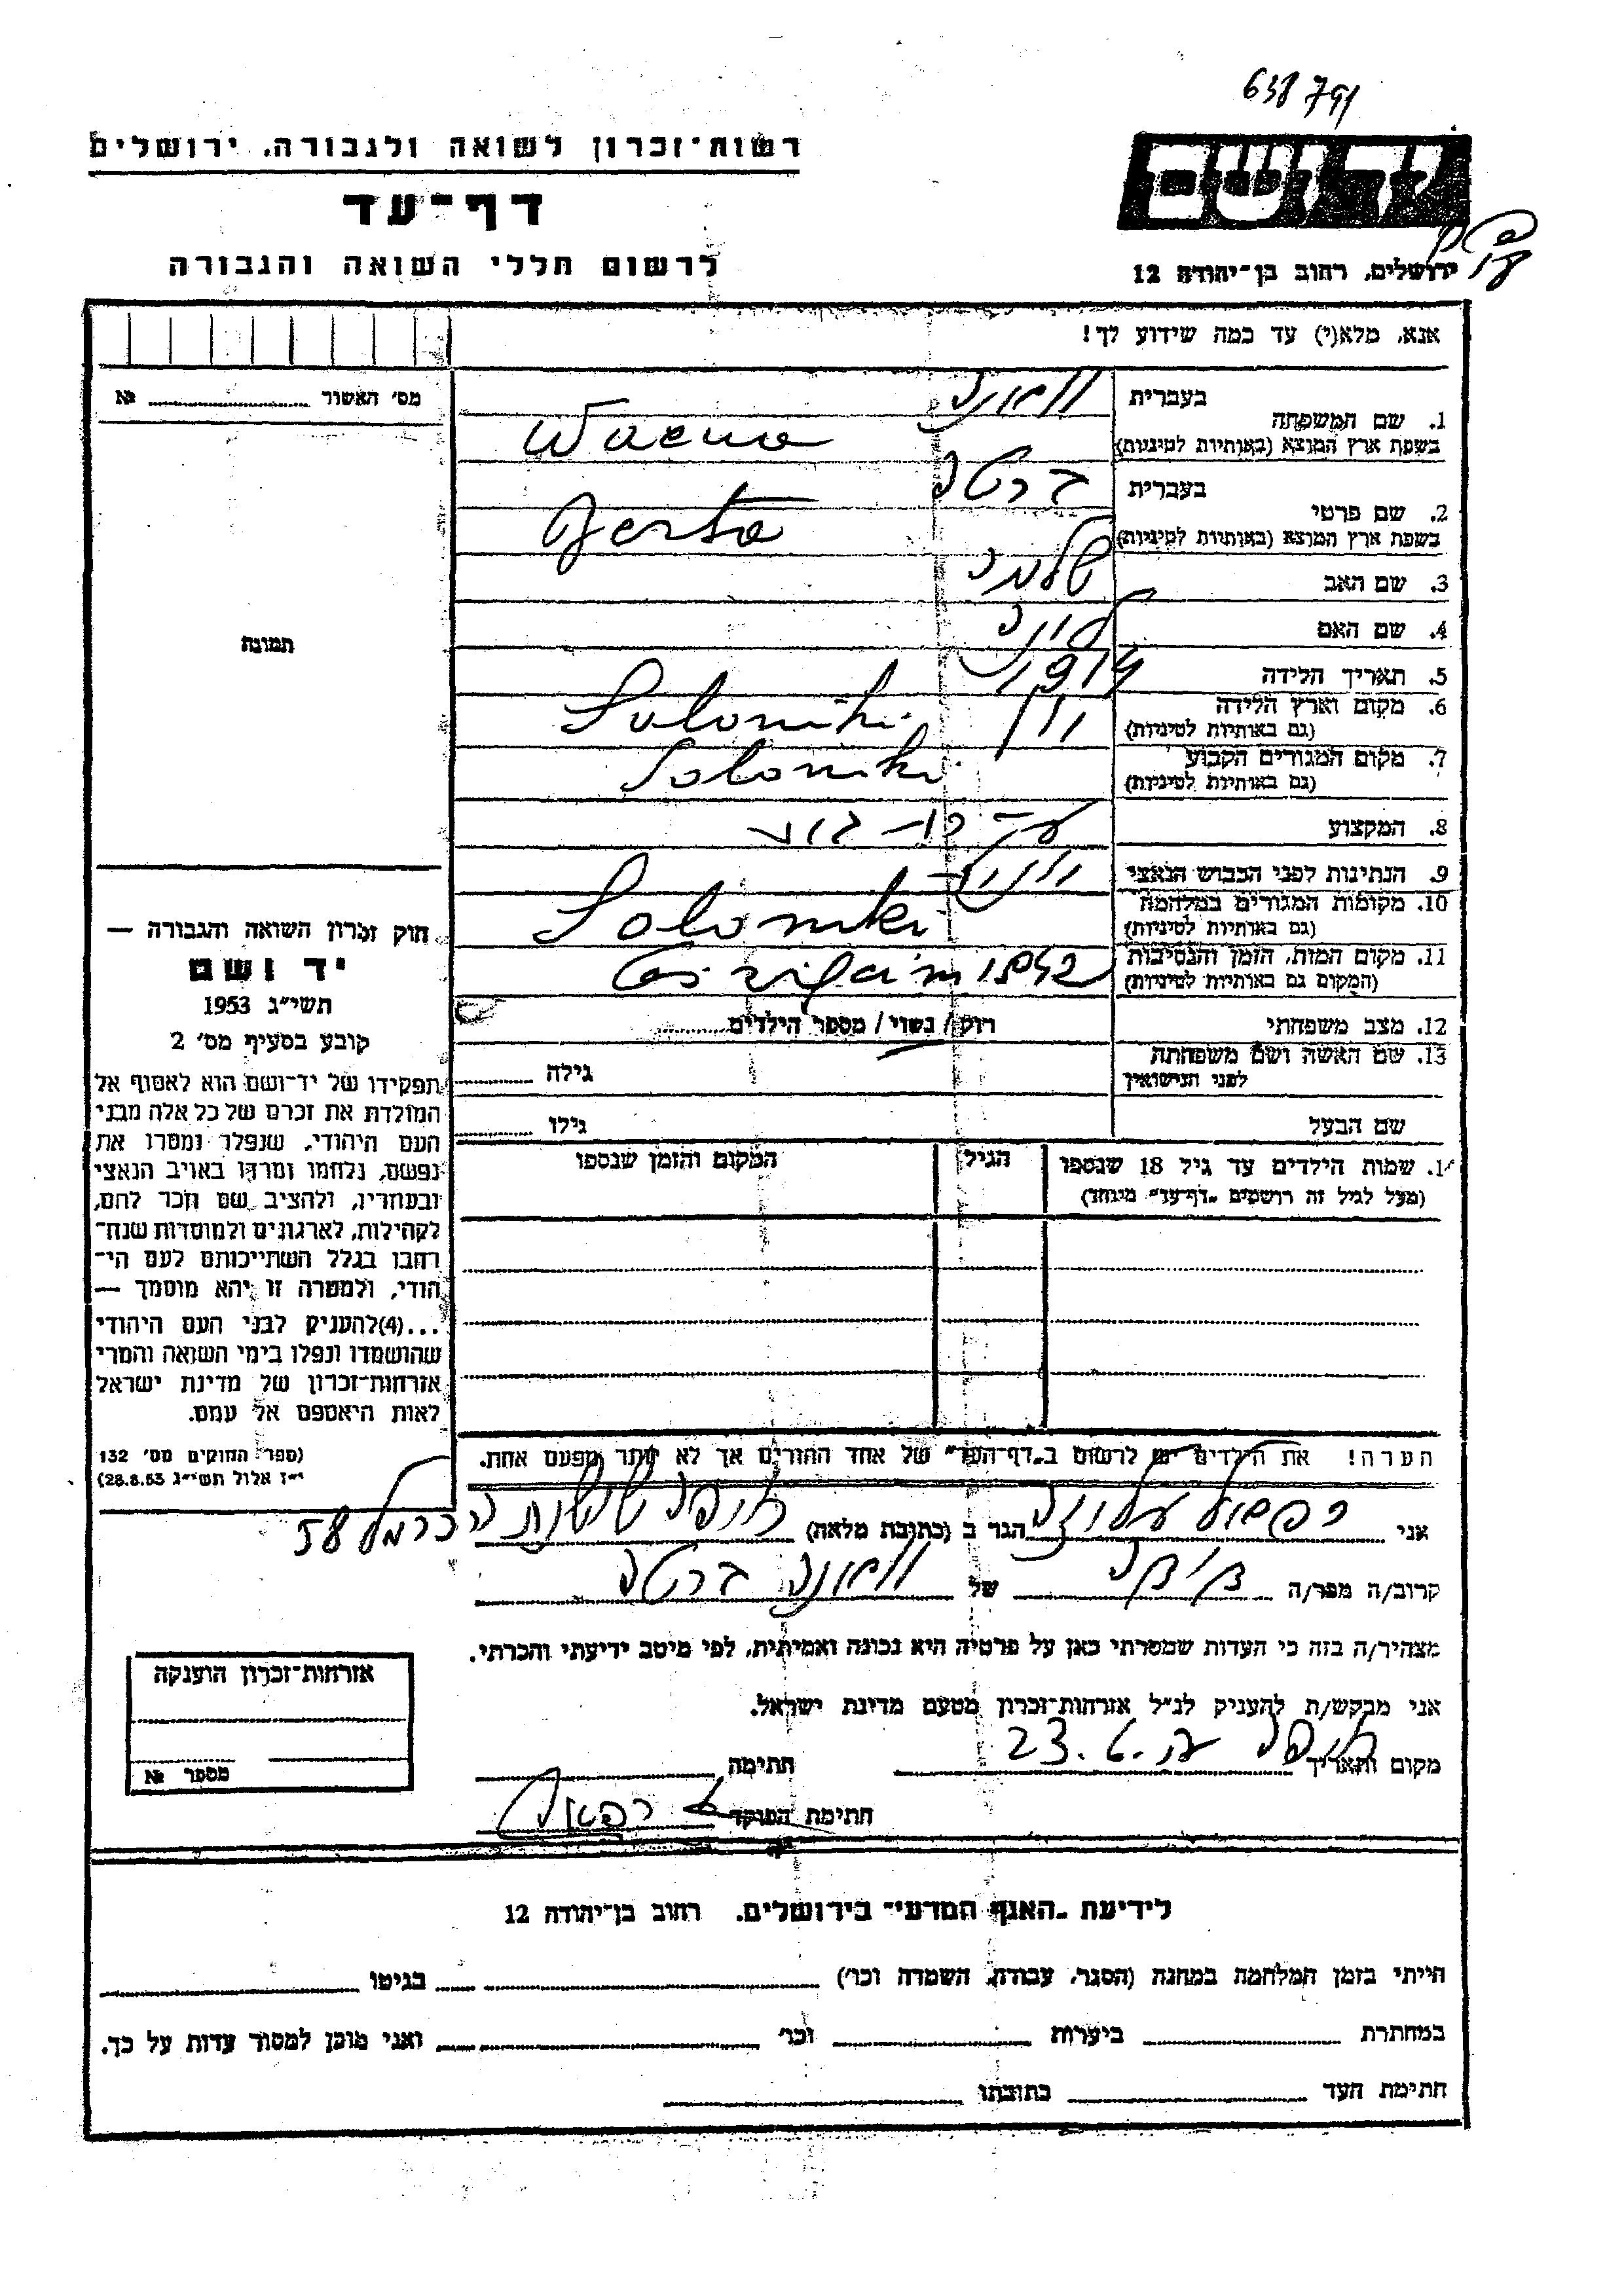 638791
רשות־זכרון לשואה ולגבורה, ירושלים
דף־עד
לרשום חללי השואה והגבורה
יד ושם
ירושלים, רחוב בן־יהודה 12
אנא, מלא(י) עד כמה שידוע לך!
מס׳ האשור № 
1. שם המשפחה
בעברית
בשפת ארץ המוצא (באותיות לטיניות)
2. שם פרטי
בעברית ברטה
בשפת ארץ המוצא (באותיות לטיניות) Berta
3. שם האב שלמה
4. שם האם
5. תאריך הלידה 1914
6. מקום וארץ הלידה יוון Saloniki
(גם באותיות לטיניות)
7. מקום המגורים הקבוע Saloniki
(גם באותיות לטיניות)
8. המקצוע עקרת־בית
9. הנתינות לפני הכבוש הנאצי יוונית
10. מקומות המגורים במלחמה Saloniki
(גם באותיות לטיניות)
11. מקום המות, הזמן והנסיבות
(המקום גם באותיות לטיניות)
12. מצב משפחתי רווק / נשוי / מספר הילדים
13. שם האשה ושם משפחתה
לפני הנישואין גילה
שם הבעל גילו
14. שמות הילדים עד גיל 18 שנספו הגיל המקום והזמן שנספו
(מעל לגיל זה רושמים „דף־עד״ מיוחד)
הערה! את הילדים יש לרשום ב„דף־העד״ של אחד ההורים אך לא יותר מפעם אחת.
תמונה
חוק זכרון השואה והגבורה —
יד ושם
תשי״ג 1953
קובע בסעיף מס׳ 2
תפקידו של יד־ושם הוא לאסוף אל
המולדת את זכרם של כל אלה מבני
העם היהודי, שנפלו ומסרו את
נפשם, נלחמו ומרדו באויב הנאצי
ובעוזריו, ולהציב שם וזכר להם,
לקהילות, לארגונים ולמוסדות שנח־
רבו בגלל השתייכותם לעם הי־
הודי, ולמטרה זו יהא מוסמך —
...(4)להעניק לבני העם היהודי
שהושמדו ונפלו בימי השואה והמרי
אזרחות־זכרון של מדינת ישראל
לאות היאספם אל עמם.
(ספר החוקים מס׳ 132
י״ז אלול תשי״ג 28.8.53)
אני רפאל הגר ב (כתובת מלאה) חיפה הכרמל 58
קרוב/ה מפר/ה של ברטה
מצהיר/ה בזה כי העדות שמסרתי כאן על פרטיה היא נכונה ואמיתית, לפי מיטב ידיעתי והכרתי.
אני מבקש/ת להעניק לנ״ל אזרחות־זכרון מטעם מדינת ישראל.
מקום ותאריך חיפה 23.6. חתימה
חתימת הפוקד רפאל
אזרחות־זכרון הוענקה
מספר №
לידיעת „האגף המדעי״ בירושלים, רחוב בן־יהודה 12
הייתי בזמן המלחמה במחנה (הסגר, עבודה, השמדה וכו׳) בגיטו
במחתרת ביערות וכו׳ ואני מוכן למסור עדות על כך.
חתימת העד כתובתו